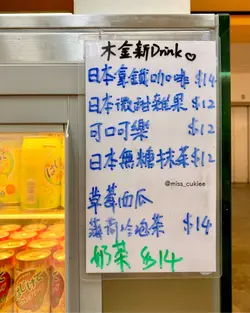 木金新Drink♡
日本拿鐵咖啡 $14
日本微甜雜果 $12
可口可樂
日本無糖抹茶 $12
@miss_cukiee
草莓面瓜
薄荷冷泡茶 $14
奶茶 $14